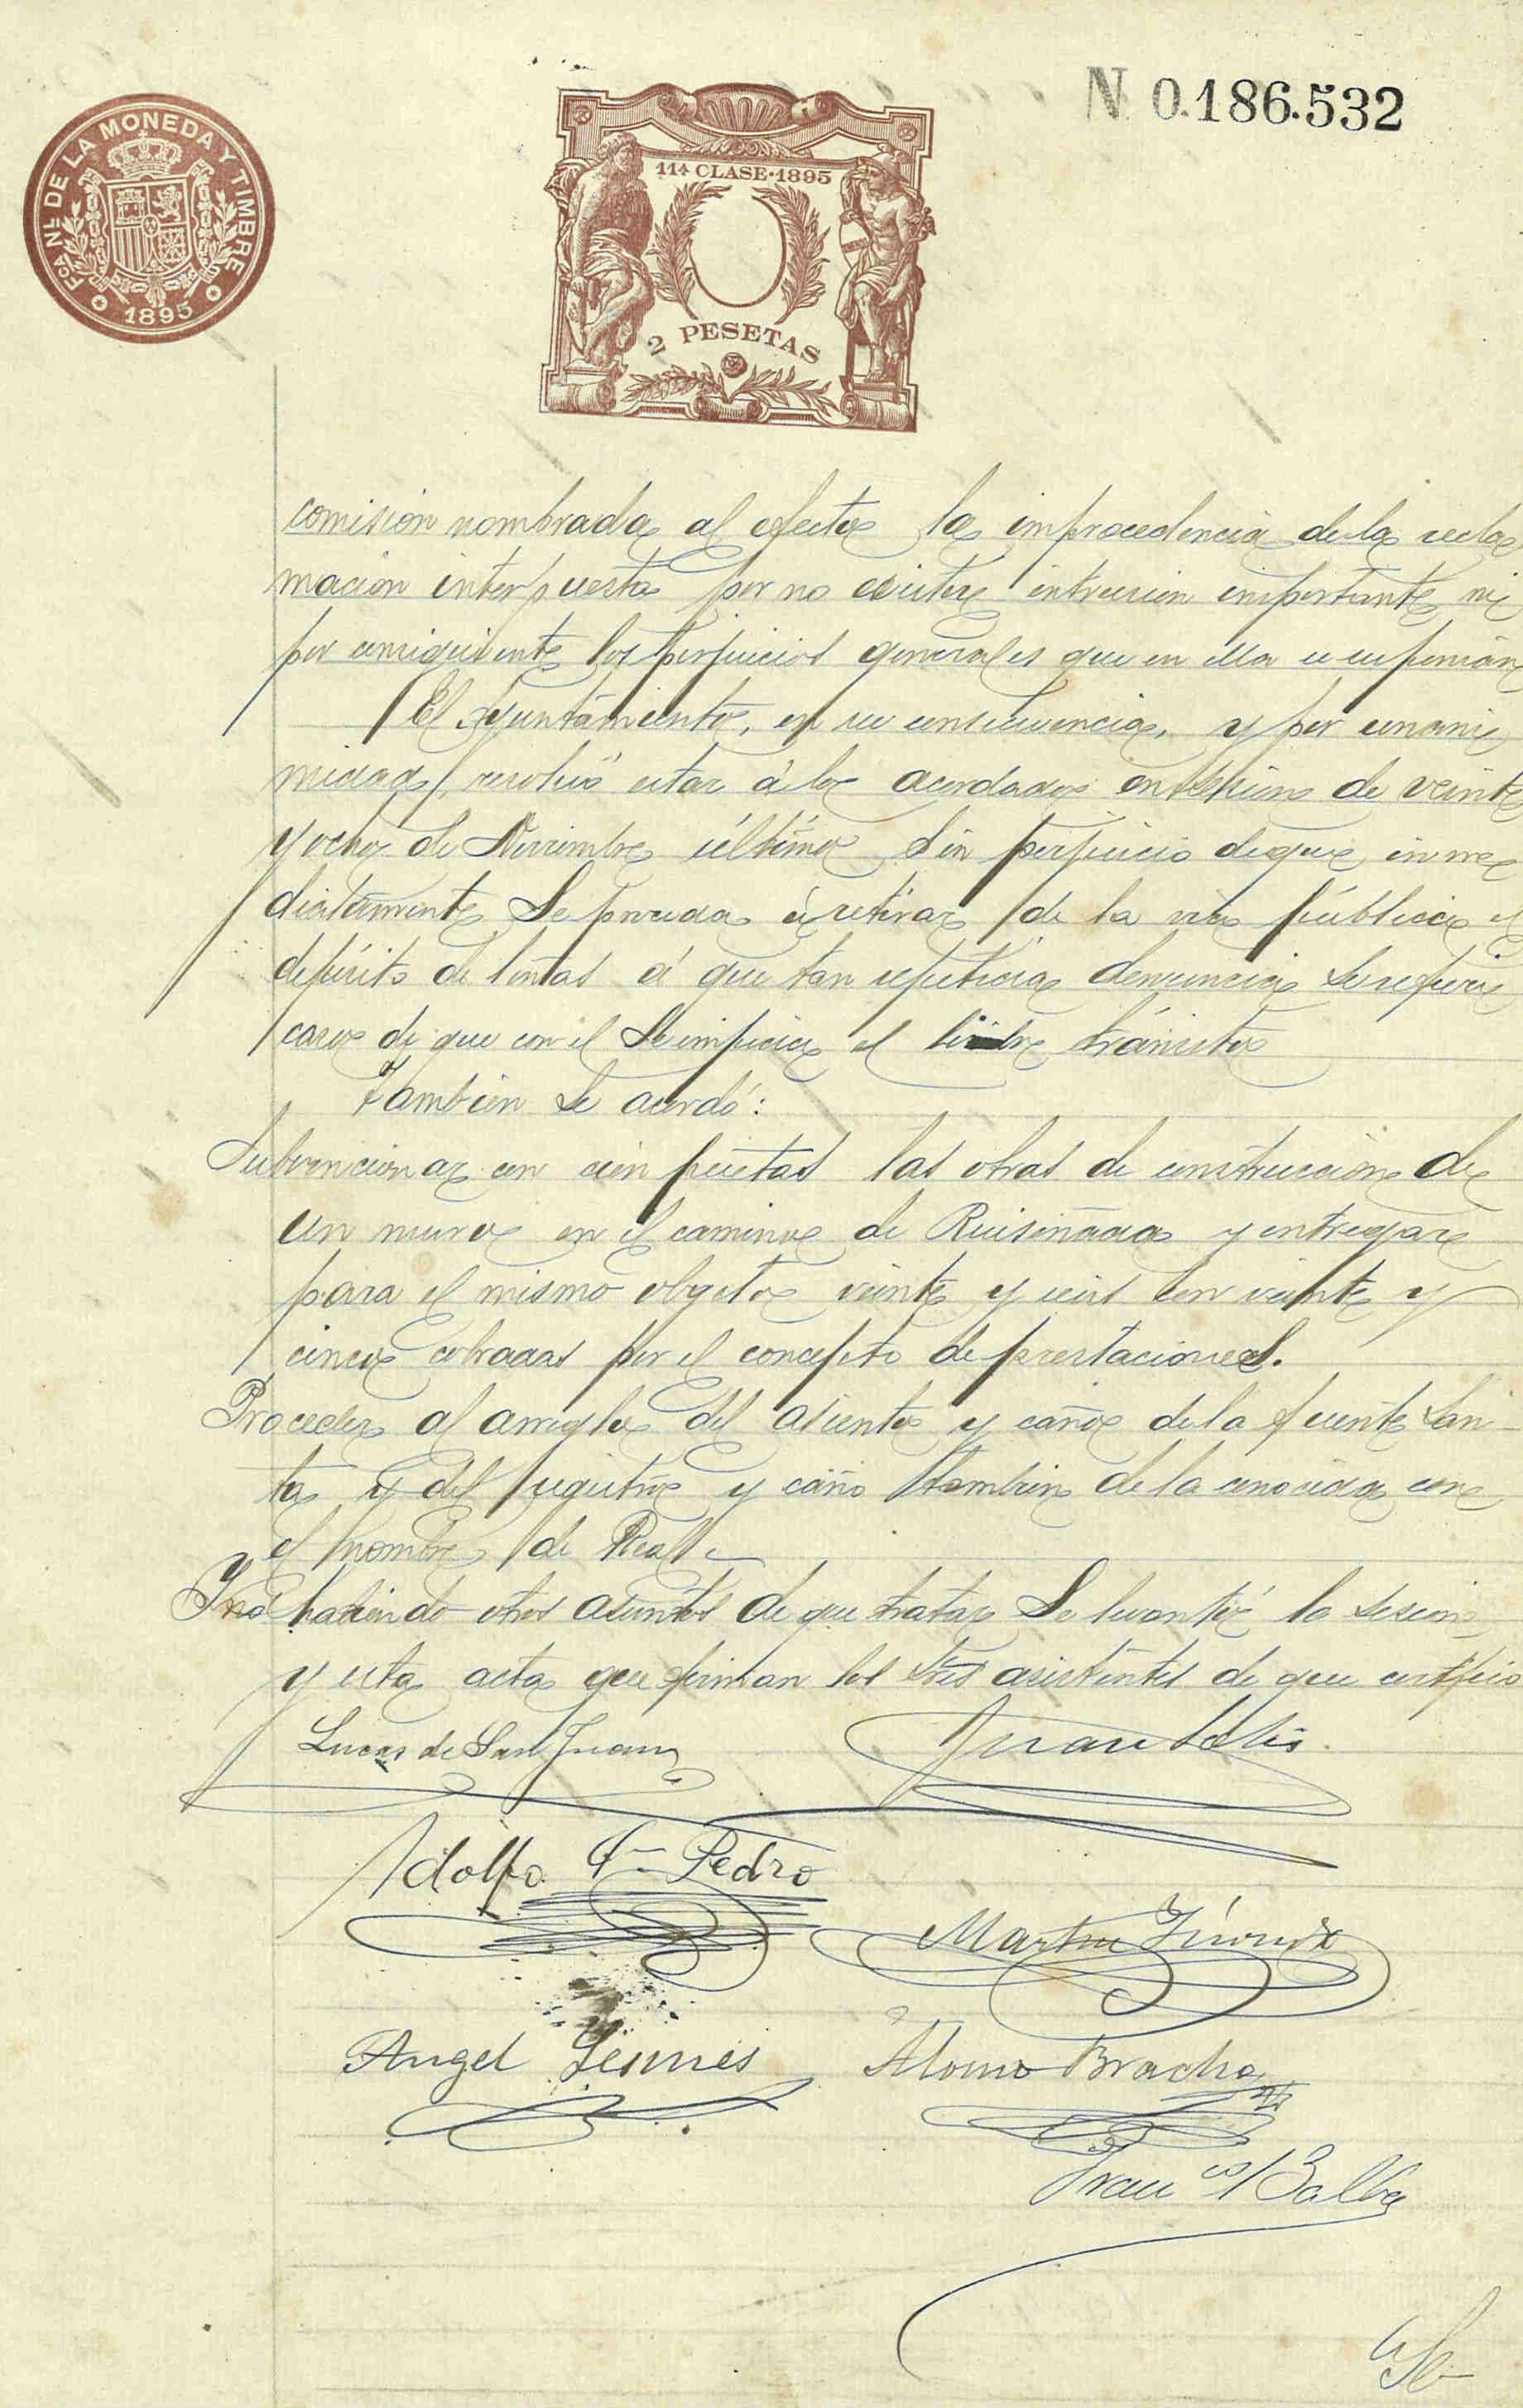 N 0.186.532
FCA. NL. DE LA MONEDA Y TIMBRE
1895
11ª CLASE·1895
2 PESETAS
comision nombrada al efecto la improcedencia de la recla
macion interpuesta por no existir intrusion importante ni
por consiguiente los perjuicios generales que en ella se suponian
El Ayuntamiento, en su consecuencia, y por unani
midad, resolvió estar á lo acordado en sesion de veinte
y ocho de Noviembre último sin perjuicio de que inme
diatamente se proceda á retirar de la via pública el
depósito de leñas á que tan repetida denuncia se refiere
caso de que con el se impida el libre tránsito
Tambien se acordó:
Subvencionar con cien pesetas las obras de construccion de
un muro en el camino de Ruiseñada y entregar
para el mismo objeto veinte y seis con veinte y
cinco cobradas por el concepto de prestaciones.
Proceder al arreglo del asiento y caño de la fuente San-
ta y del registro y caño tambien de la conocida con
el nombre de Real.
Y no habiendo otros asuntos de que tratar se levantó la sesion
y esta acta que firman los Sres asistentes de que certifico
Lucas de San Juan
Juan Solis
Adolfo Pedro
Martin
Angel
Alonso Bracho
Franco Balba